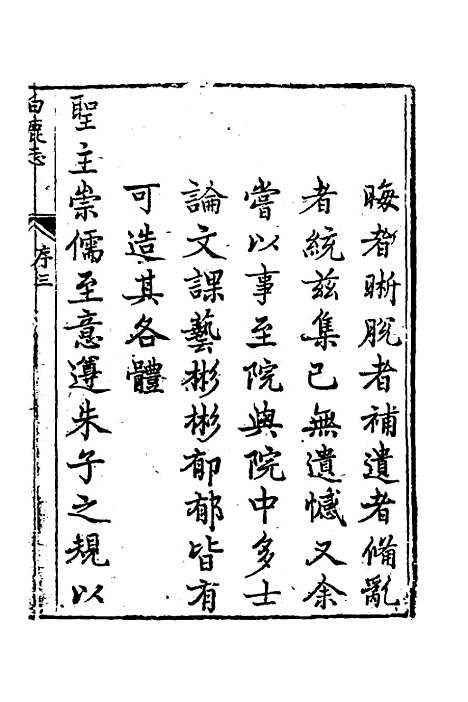 晦者晰脫者補遺者備亂
者統茲集已無遺憾又余
嘗以事至院與院中多士
論文課藝彬彬郁郁皆有
可造其各體
聖主崇儒至意遵朱子之規以
白鹿志
序三